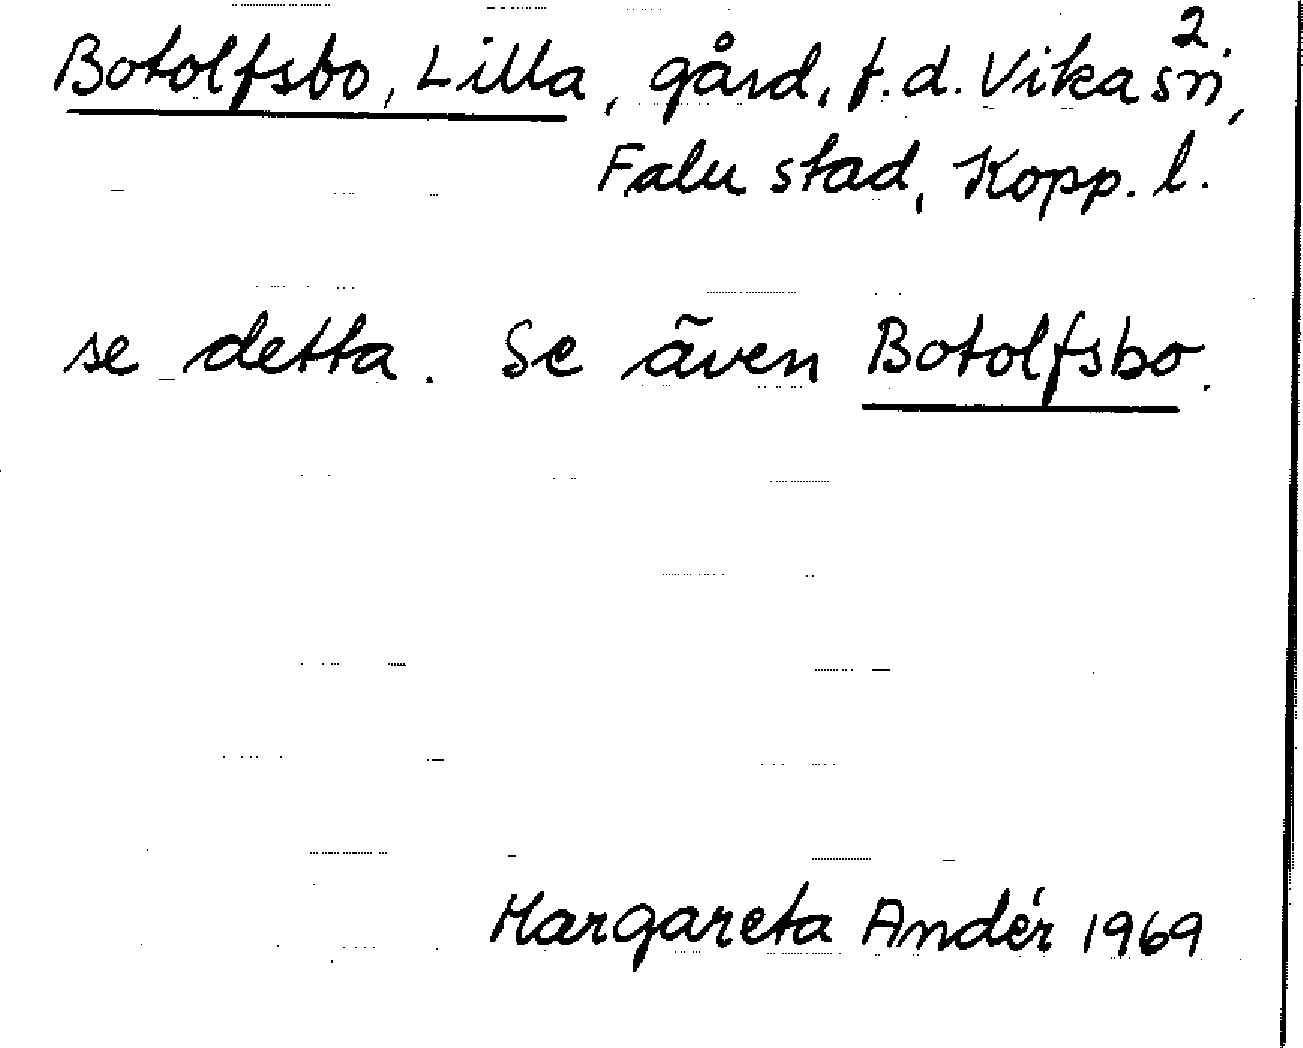 2.
Botolfsbo, Lilla, gård, f.d. Vika sn,
Falu stad, Kopp. l.
se detta. Se även Botolfsbo.
Margareta Andér 1969